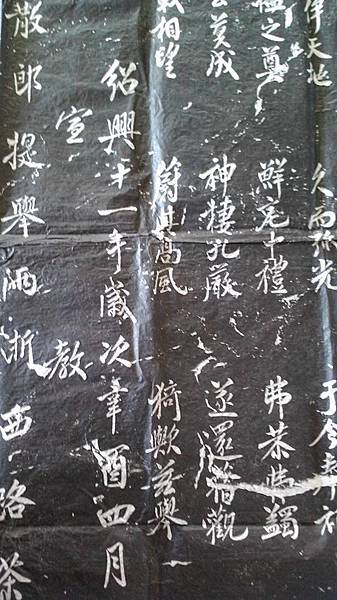 天地 久而弥光 于今
極之尊 鮮克中禮 弗恭弗蠲
莫成 神棲孔嚴 遂還舊觀
載相望 高風 猗歟茲舉
紹興十一年歲次辛酉四月
宣 教
散郎提舉兩浙西路茶